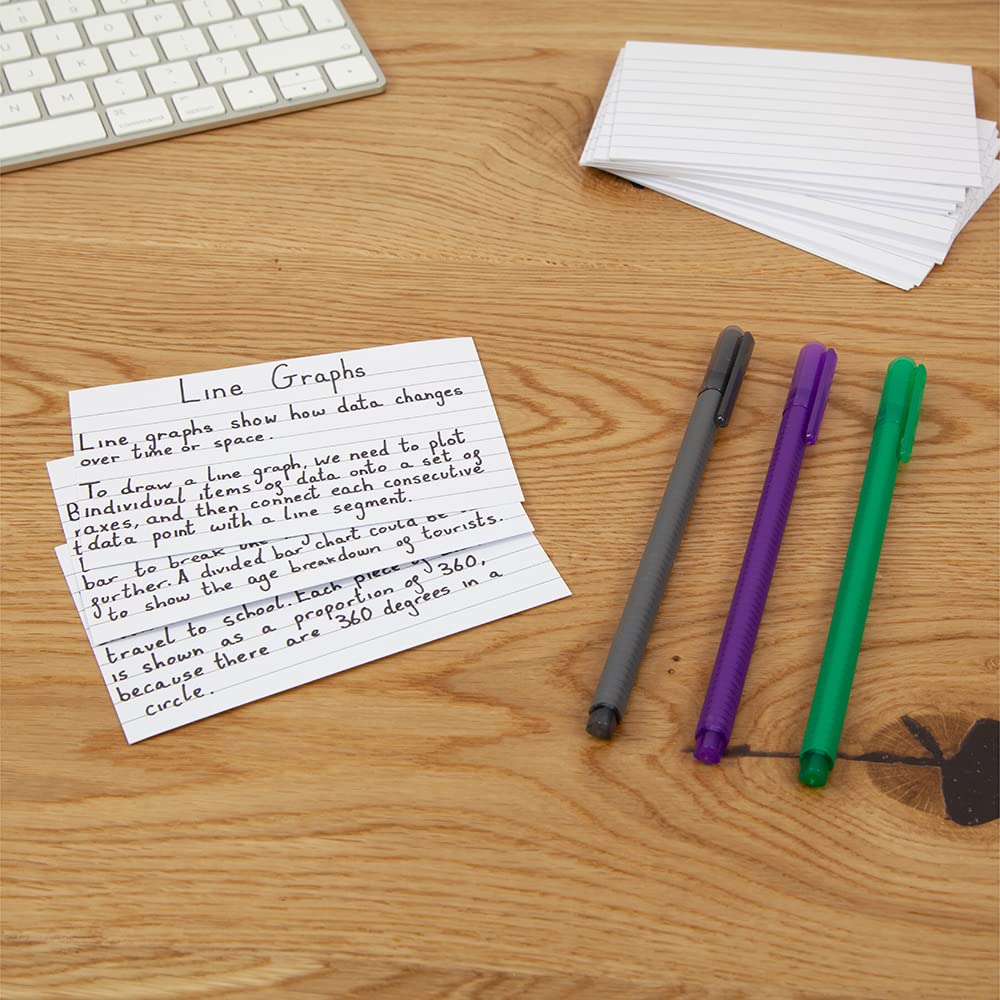 P
J K L
N M
command
option
Line Graphs
Line graphs show how data changes
over time or space.
To draw a line graph, we need to plot
B individual items of data onto a set of
r axes, and then connect each consecutive
t data point with a line segment.
bar to break
further. A divided bar chart could be
to show the age breakdown of tourists.
travel to school. Each piece
is shown as a proportion of 360,
because there are 360 degrees in a
circle.